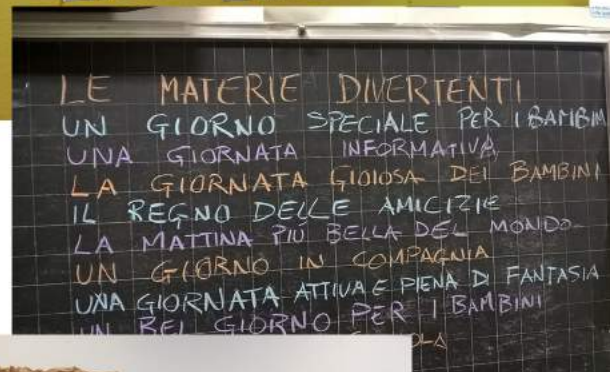 LE MATERIE DIVERTENTI
UN GIORNO SPECIALE PER I BAMBIN
UNA GIORNATA INFORMATIVA
LA GIORNATA GIOIOSA DEI BAMBINI
IL REGNO DELLE AMICIZIE
LA MATTINA PIÙ BELLA DEL MONDO
UN GIORNO IN COMPAGNIA
UNA GIORNATA ATTIVA E PIENA DI FANTASIA
UN BEL GIORNO PER I BAMBINI